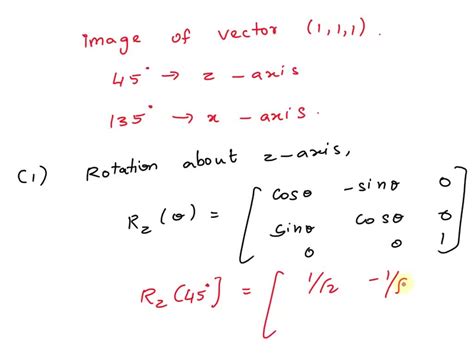 image of vector (1,1,1).
45° → z-axis
135° → x-axis.
(1) Rotation about z-axis,
cosθ -sinθ 0
R_z(θ) = [ sinθ cosθ 0 ]
0 0 1
R_z(45°] = [ 1/√2 -1/√